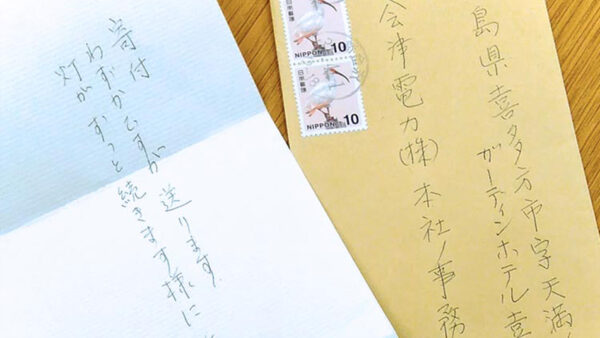 寄付
わずかですが 送ります.
灯が ずっと 続きます様に
日本郵便
NIPPON 10
日本郵便
NIPPON 10
島県喜多方市字天満
ガーデインホテル喜
会津電力(株)本社ノ事務